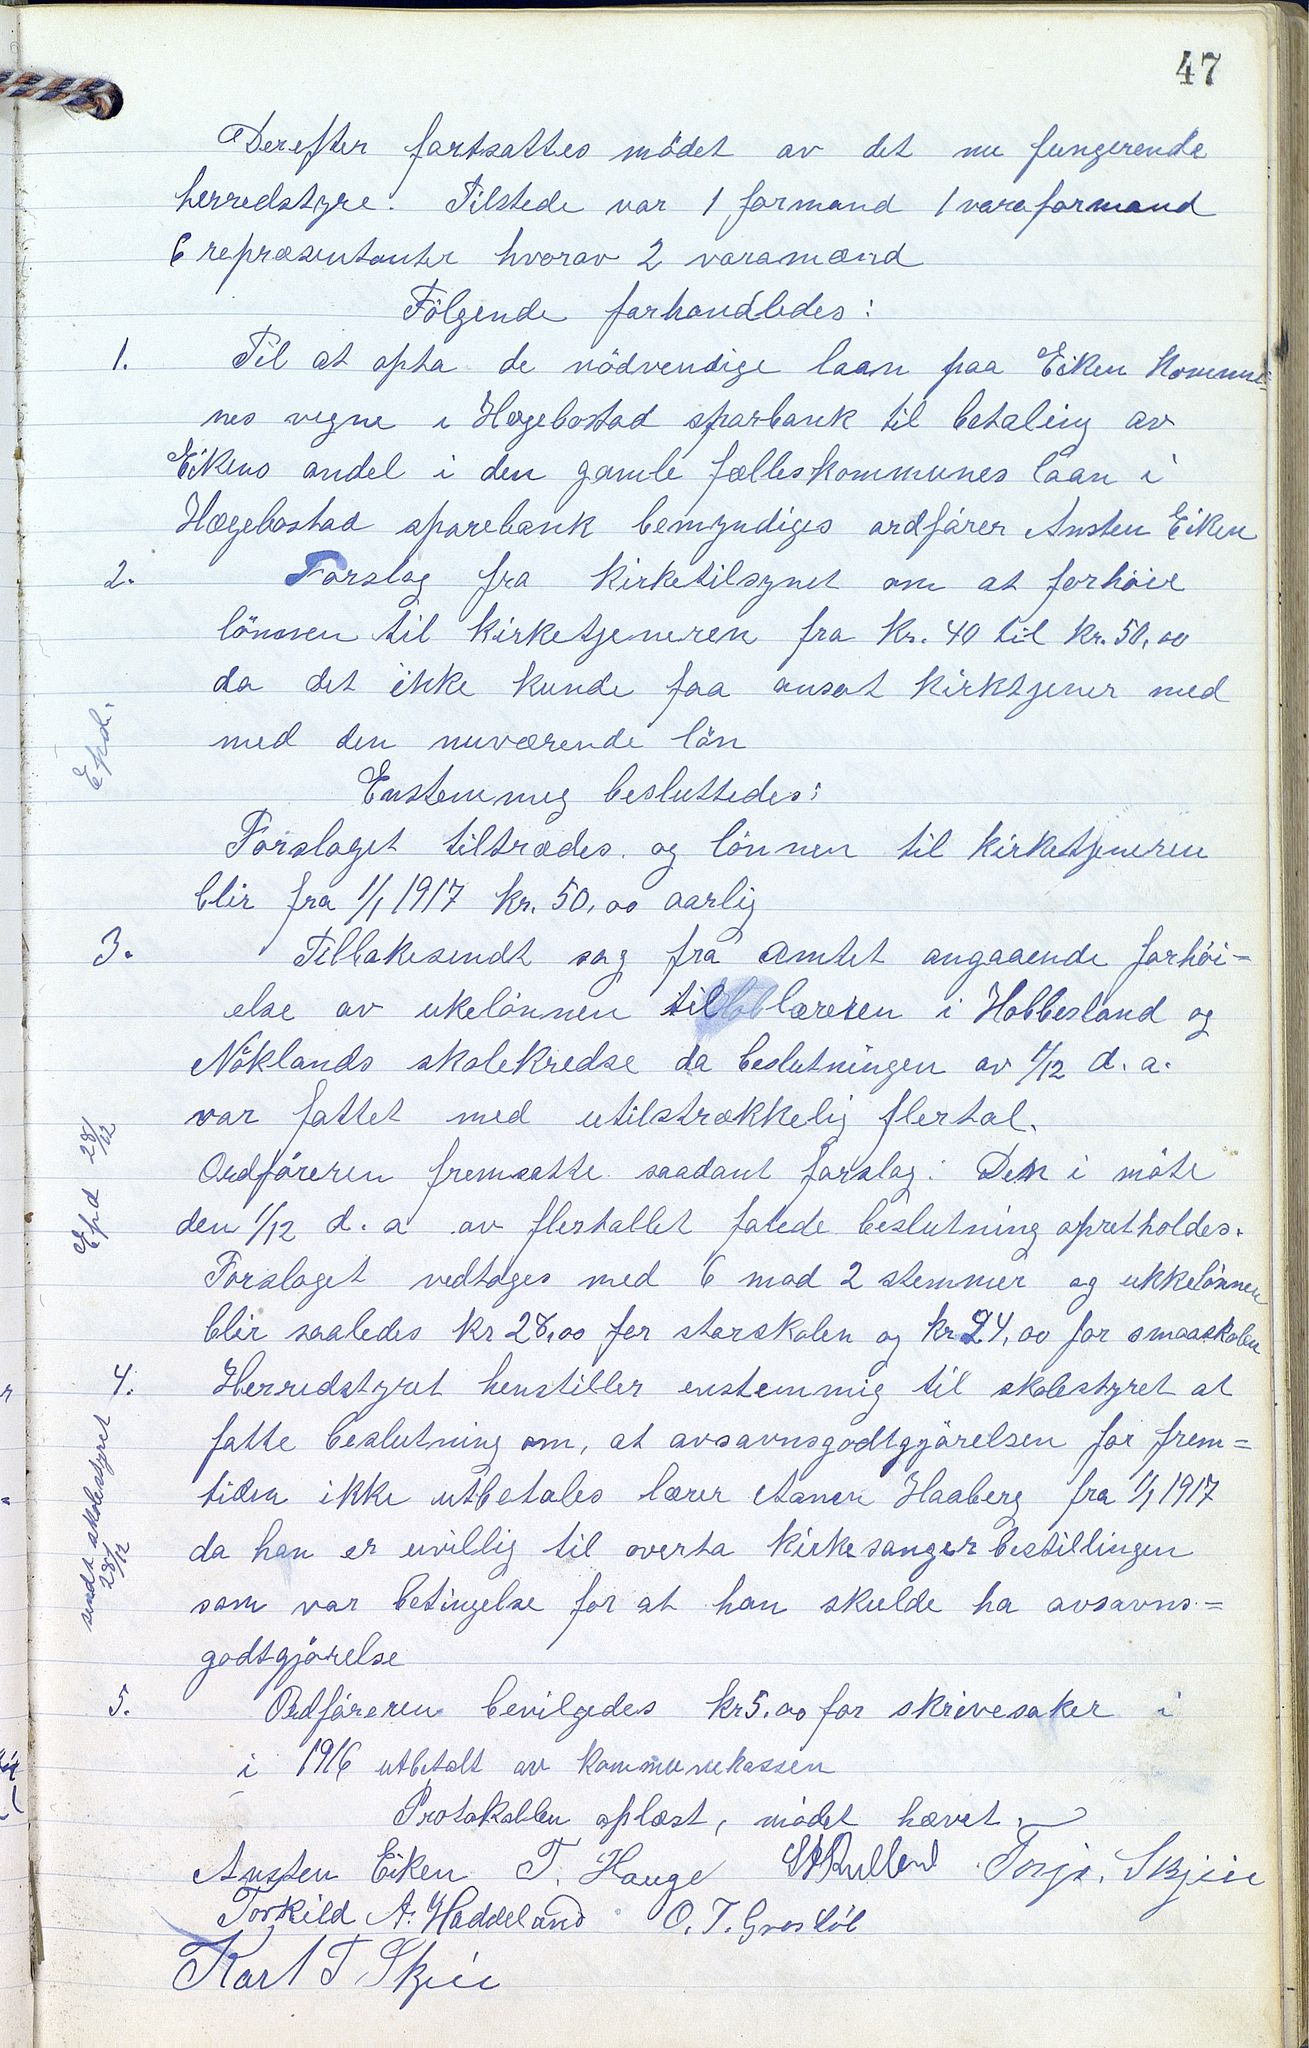 47
Derefter fortsattes mödet av det nu fungerende
herredstyre. Tilstede var 1 formand 1 varaformand
6 repræsentanter hvorav 2 varamænd
Fölgende forhandledes:
1. Til at opta de nödvendige laan paa Eiken Kommu=
nes vegne i Hægebostad sparbank til betaling av
Eikens andel i den gamle fælleskommunes laan i
Hægebostad sparebank bemyndiges ordförer Ansten Eiken
2. Forslag fra kirketilsynet om at forhöie
lönnen til kirketjeneren fra kr. 40 til kr. 50,00
da det ikke kunde faa ansat kirktjener med
med den nuværende lön
Epd.
Enstemmig besluttedes:
Forslaget tiltrædes og lönnen til kirketjeneren
blir fra 1/1 1917 kr. 50,00 aarlig
3. Tilbakesendt sag fra amtet angaaende forhöi=
else av ukelönnen til læreren i Hobbesland og
Nöklands skolekredse da beslutningen av 1/12 d. a.
var fattet med utilstrækkelig flertal.
Epd 28/12
Ordföreren fremsatte saadant forslag: Den i möte
den 1/12 d. a av flertallet fatede beslutning opretholdes.
Forslaget vedtages med 6 mod 2 stemmer og ukkelönnen
blir saaledes kr 28,00 for storskolen og kr 24,00 for smaaskolen
4. Herredstyret henstiller enstemmig til skolestyret at
fatte beslutning om, at avsavnsgodtgjörelsen for frem=
tiden ikke utbetales lærer Aanen Haaberg fra 1/1 1917
sendt skolestyret 28/12
da han er uvillig til overta kirkesangerbestillingen
som var betingelse for at han skulde ha avsavns=
godtgjörelse
5. Ordföreren bevilgedes kr 5,00 for skrivesaker i
i 1916 utbetalt av kommunekassen
Protokollen oplæst, mödet hævet.
Ansten Eiken T. Hauge Torjs. Skjeie
Torkild A. Haddeland O. T. Grostöl
Karl T. Skjeie